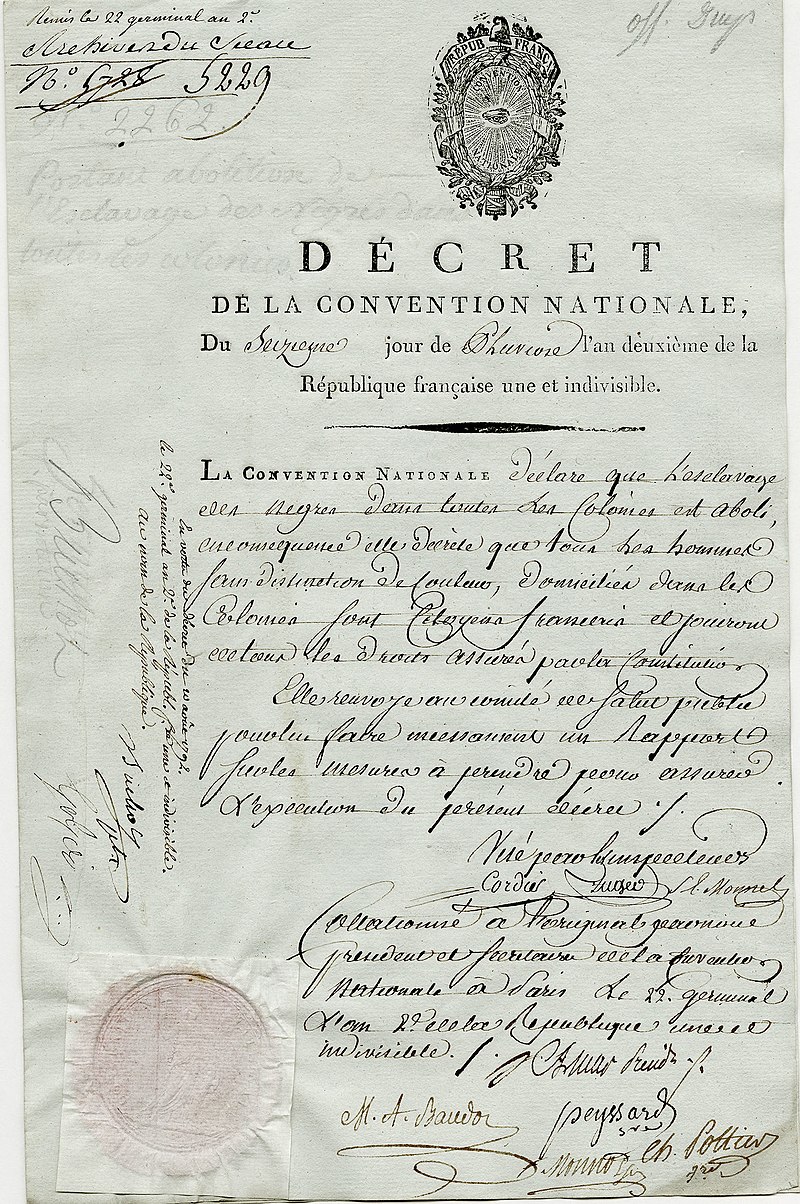 Remis le 22 germinal an 2e
Archives du Sceau
No. 5728 5229
off. Guys
RÉPUB FRANÇ
2262
Portant abolition de
l'Esclavage des Nègres dans
toutes les colonies
DÉCRET
DE LA CONVENTION NATIONALE,
Du Seizieme jour de Pluviose l'an deuxième de la
République française une et indivisible.
LA CONVENTION NATIONALE déclare que L'esclavage
des Negres dans toutes Les Colonies est aboli,
en consequence elle décrète que tous Les hommes
sans distinction de Couleur, domiciliés dans les
Colonies sont Citoyens français et jouiront
de tous les droits assurés par la Constitution
Elle renvoye au comité de Salut public
pour lui faire incessament un Rapport
sur les mesures à prendre pour assurer
L'execution du présent décret ./.
En vertu du décret du 10 août 1792.
le 22e germinal an 2e de la Républ. fse une et indivisible.
au nom de la République.
Visé par les inspecteurs
Cordier Auger S.E. Monnel
Collationné à l'original par nous
president et Secretaires de la Convention
Nationale à Paris Le 22. germinal
L'an 2e de la Republique une et
indivisible. ./.
Amar Presidt
M. A. Baudot
peyssard
sre
Monnot Ch. Pottier
sre